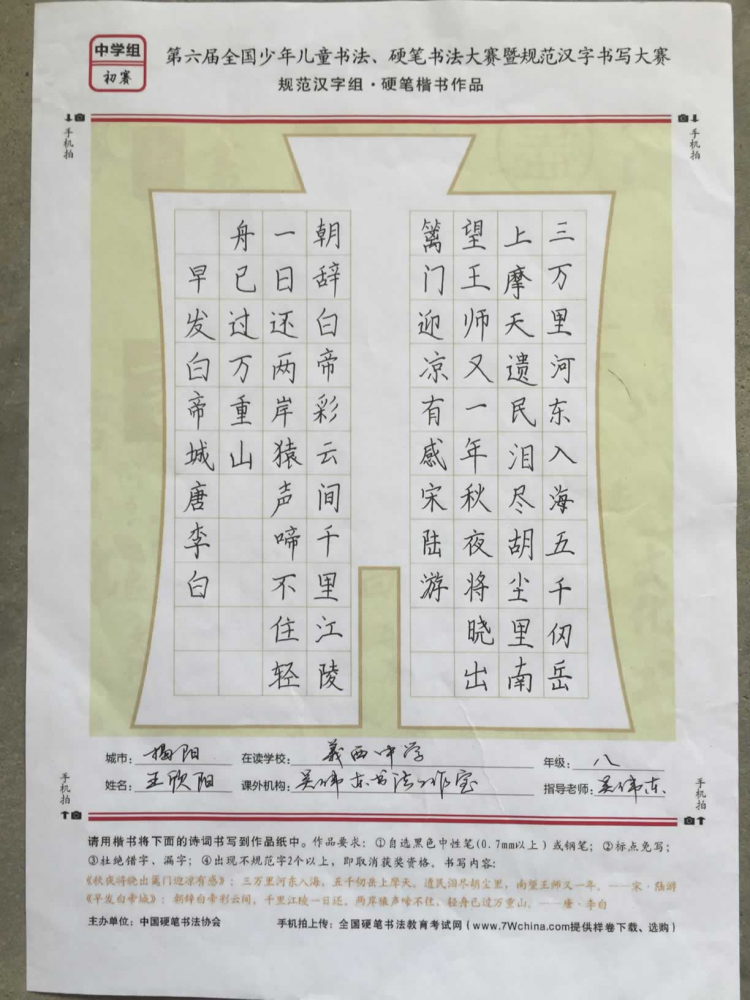 中学组
初赛
第六届全国少年儿童书法、硬笔书法大赛暨规范汉字书写大赛
规范汉字组·硬笔楷书作品
手机拍
手机拍
三万里河东入海五千仞岳
上摩天遗民泪尽胡尘里南
望王师又一年秋夜将晓出
篱门迎凉有感宋陆游
朝辞白帝彩云间千里江陵
一日还两岸猿声啼不住轻
舟已过万重山
早发白帝城唐李白
城市：揭阳 在读学校：义西中学 年级：八
姓名：王欣阳 课外机构：吴伟东书法工作室 指导老师：吴伟东
手机拍
手机拍
请用楷书将下面的诗词书写到作品纸中。作品要求：①自选黑色中性笔(0.7mm以上）或钢笔；②标点免写；
③杜绝错字、漏字；④出现不规范字2个以上，即取消获奖资格。书写内容：
《秋夜将晓出篱门迎凉有感》：三万里河东入海，五千仞岳上摩天。遗民泪尽胡尘里，南望王师又一年。——宋·陆游
《早发白帝城》：朝辞白帝彩云间，千里江陵一日还。两岸猿声啼不住，轻舟已过万重山。——唐·李白
主办单位：中国硬笔书法协会 手机拍上传：全国硬笔书法教育考试网（www.7Wchina.com提供样卷下载、选购）